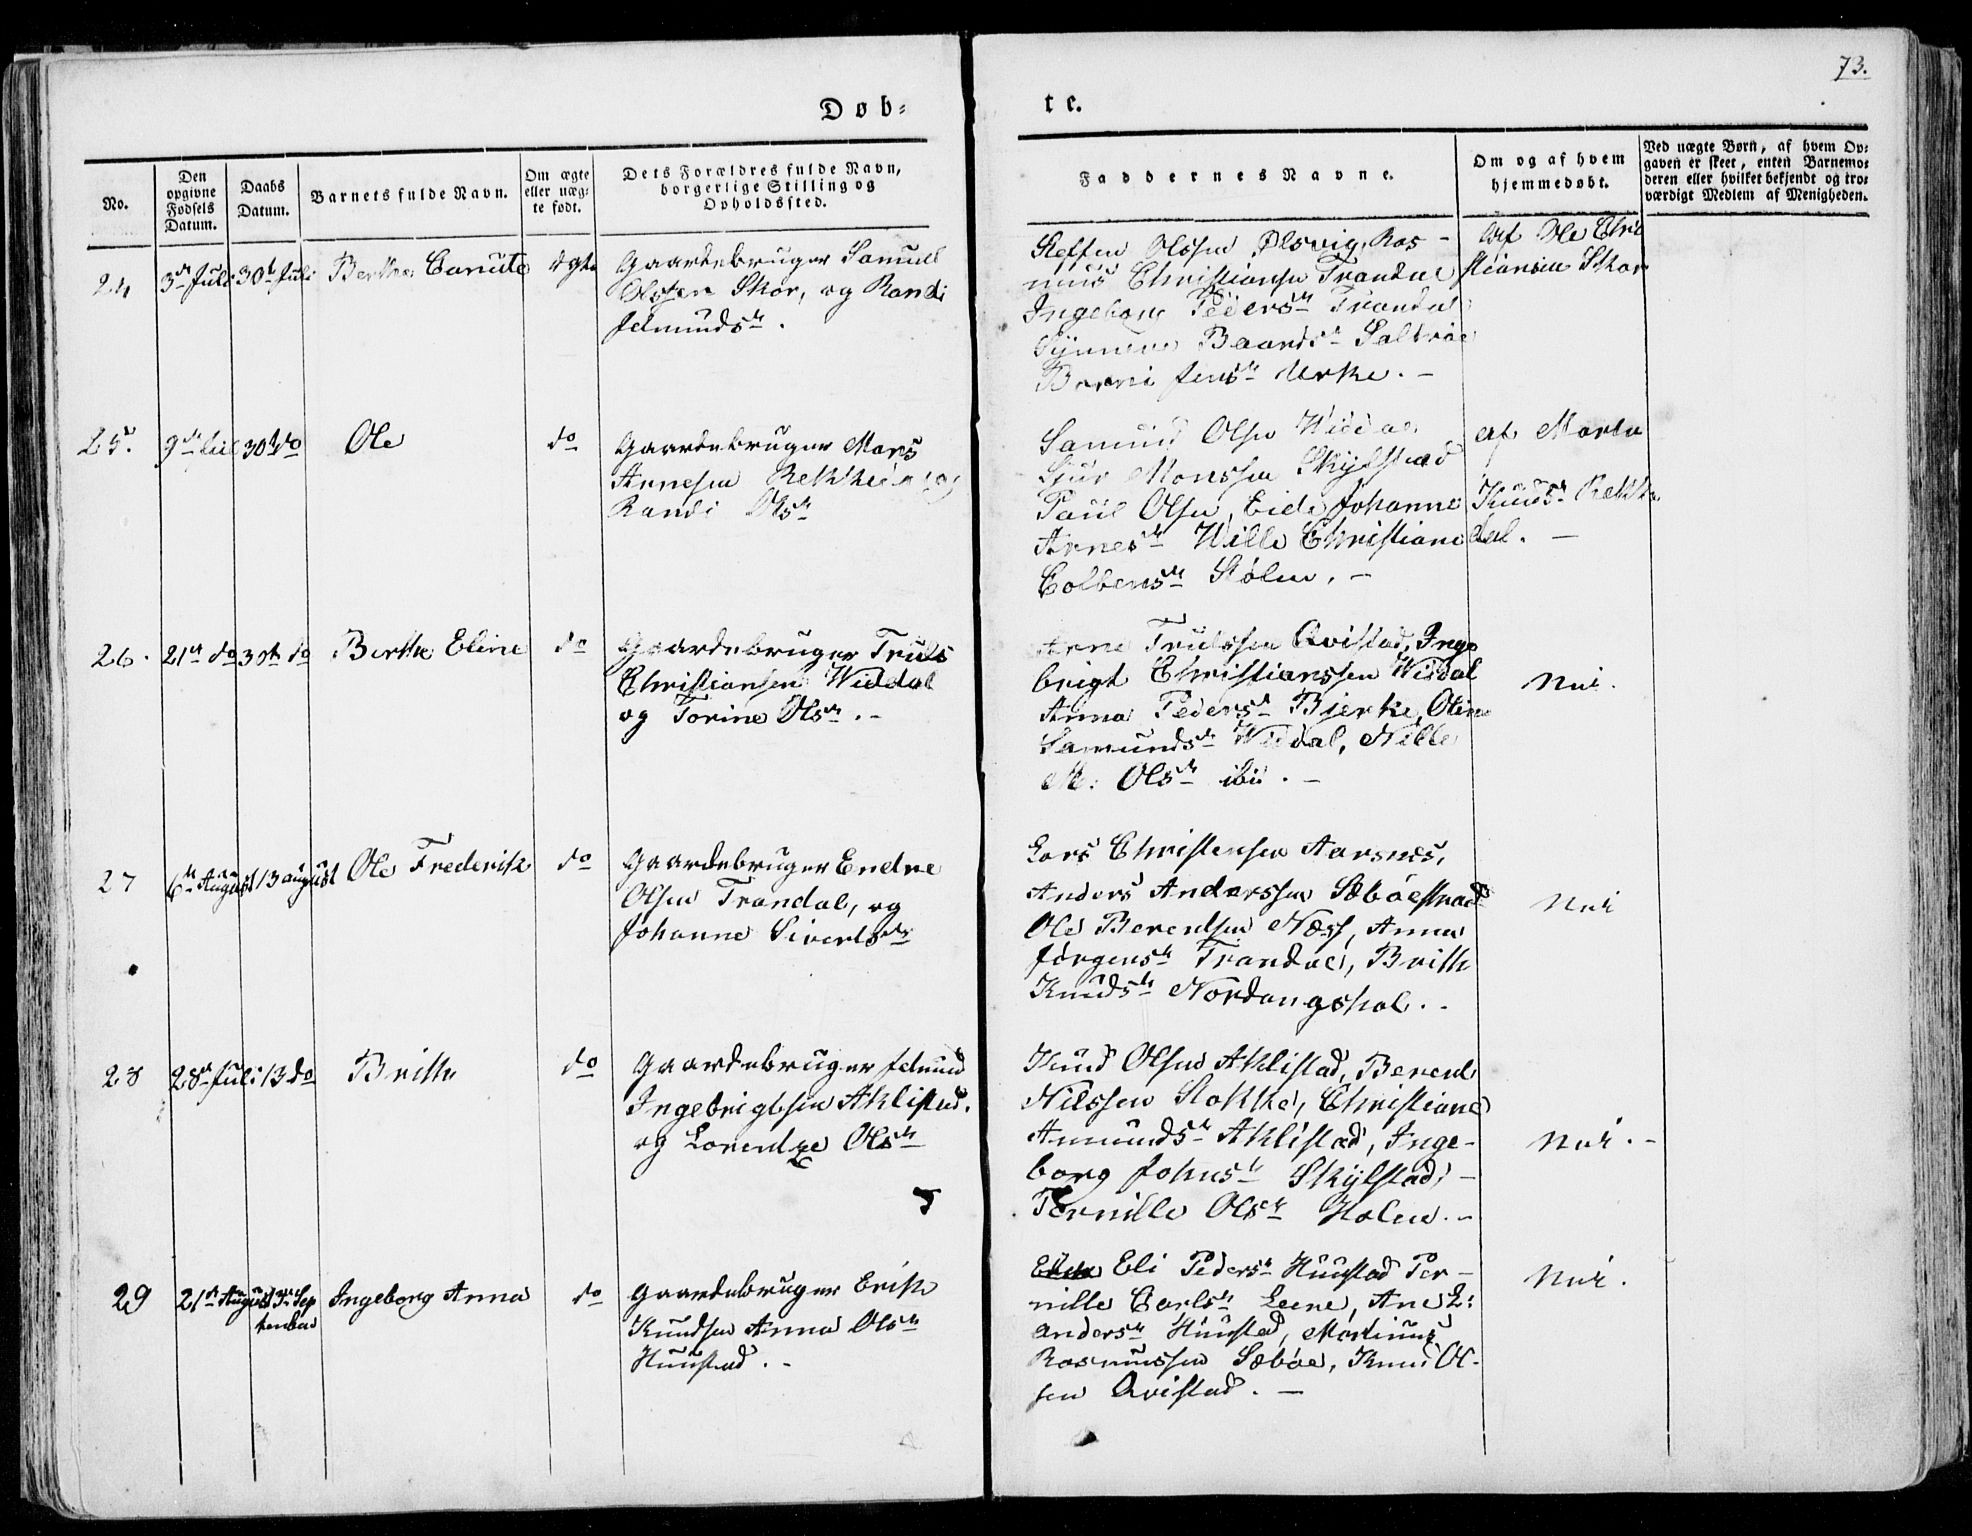 73.
Døb-
te.
No.
Den opgivne Fødsels Datum.
Daabs Datum.
Barnets fulde Navn.
Om ægte eller uæg-te født.
Dets Forældres fulde Navn, borgerlige Stilling og Opholdssted.
Faddernes Navne.
Om og af hvem hjemmedøbt.
Ved uægte Børn, af hvem Op-
gaven er skeet, enten Barnemo-
deren eller hvilket bekjendt og tro-
værdigt Medlem af Menigheden.
24 3de Juli 30te Juli Berthe Canute ægte Gaardebruger Samuel
Olssen Skor, og Randi
Jetmundsdr.
Steffen Olssen Ølsvig, Ras-
mus Christiansen Trandal
Ingeborg Pedersdr Trandal
Synneve Baardsdr Saltrøe
Jensdr Urke. -
Af Ole Chri
stiansen Skor
25. 9de Juli 30te do Ole do Gaardebruger Mons
Arnesen Rekkedal og
Randi Olsdr
Samund Olsen Widdal
Sjur Monssen Skylstad
Paul Olsen, Eide Johanne
Arnesdr Wille Christiane
Colbensdr Stølen. -
af Marte
Knudsdr Rekke
dal. -
26. 21de do 30te do Berthe Eline do Gaardebruger Truls
Christiansen Widdal
og Torine Olsdr. -
Arne Trulssen Qvistad, Inge
brigt Christianssen Widdal
Anna Pedersdr Bjerke, Oline
Samundsdr Widdal, Nille
M: Olsdr ibid. -
Nei.
27 6te August 13 august Ole Frederik do Gaardebruger Endre
Olsen Trandal, og
Johanne Sivertsdr
Lars Christensen Aarsnes,
Anders Anderssen Sæbøestrand
Ole Berentsen Næss, Anna
Jørgensdr Trandal, Brithe
Knudsdr Nordangshol. -
Nei
28 28de Juli 13 do Brithe do Gaardebruger Jetmund
Ingebrigtsen Aklistad.
og Lorentze Olsdr
Knud Olsen Aklistad, Berent
Nilssen Stokke, Christiane
Amundsdr Aklistad, Inge-
borg Johnsdr Skylstad, -
Pernille Olsdr Holen. -
Nei. -
29 21de August 3de Sep
tember Ingeborg Anna do Gaardebruger Erik
Knudsen Anna Olsdr
Hunstad. -
Eli Pedersdr Hunstad Per-
nille Carlsdr Leene, Ane L:
Andersdr Hunstad, Martinus
Rasmussen Sæbøe, Knud Ol-
sen Qvistad. -
Nei.